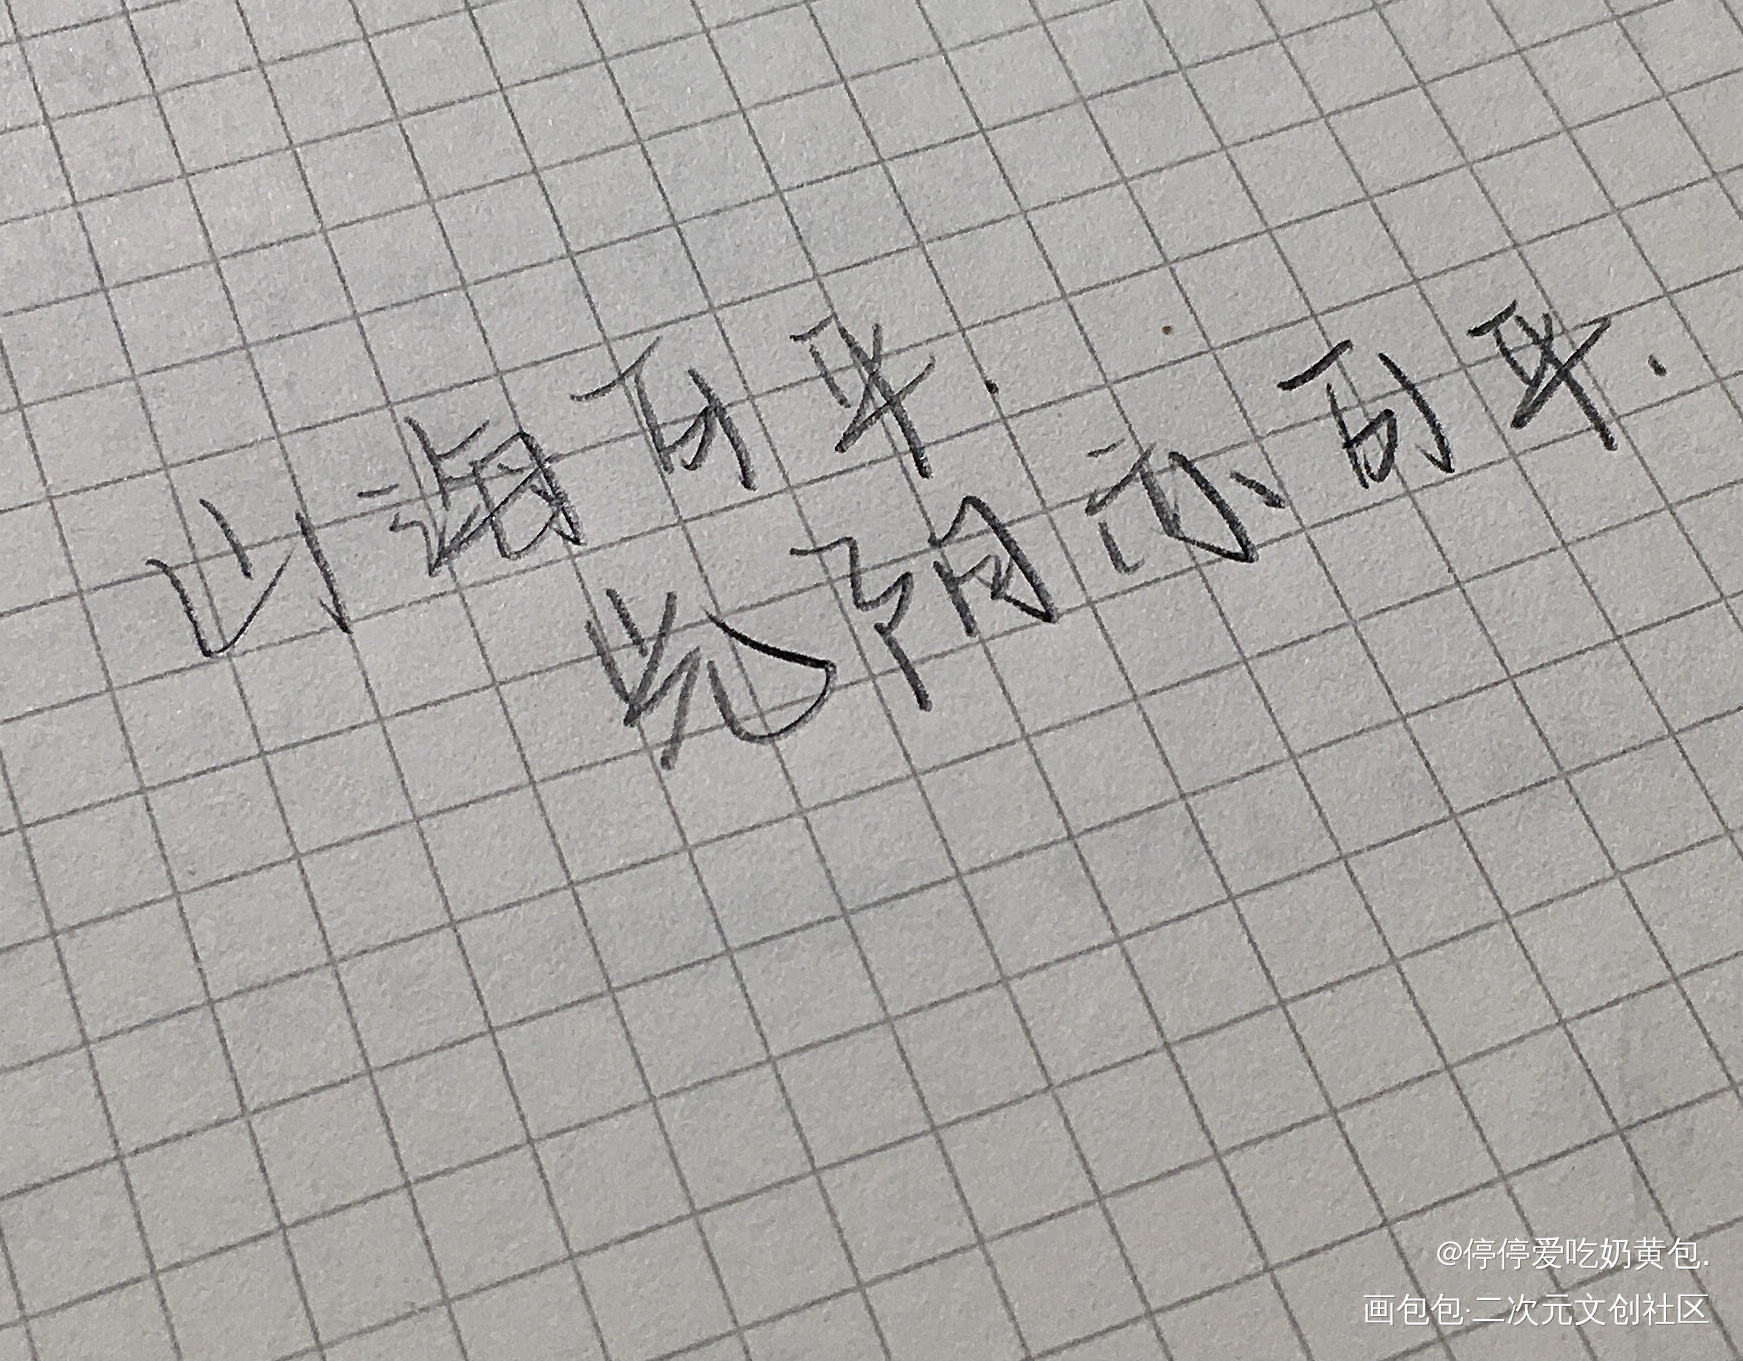 山海可平.
光阴亦可平.
@停停爱吃奶黄包.
画包包·二次元文创社区